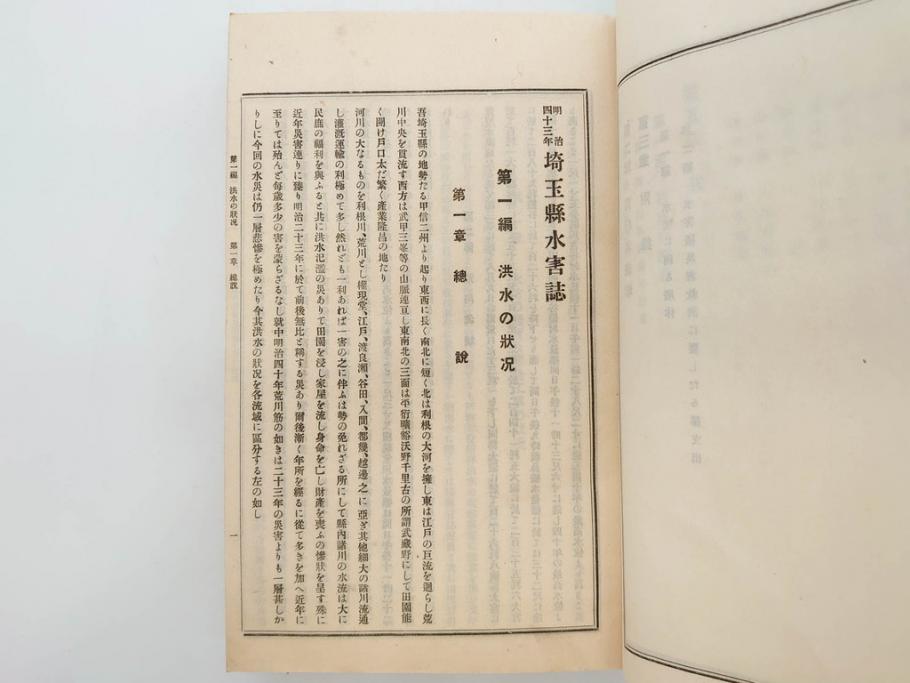 明治四十三年 埼玉縣水害誌
第一編 洪水の狀况
第一章 總說
吾埼玉縣の地勢たる甲信二州より起り東西に長く南北に短く北は利根の大河を擁し東は江戶の巨流を遶らし荒
川中央を貫流す西方は武甲三峯等の山脈連亘し東南北の三面は平衍曠豁沃野千里古の所謂武藏野にして田園能
く開け戶口太だ繁く產業隆昌の地たり
河川の大なるものを利根川、荒川とし權現堂、江戶、渡良瀬、谷田、入間、都幾、越邊之に亞ぎ其他細大の諸川流通
し灌漑運輸の利極めて多し然れども一利あれば一害の之に伴ふは勢の免れざる所にして縣內諸川の水流は大に
民庶の福利を與ふると共に洪水氾濫の災ありて田園を浸し家屋を流し身命を亡し財產を喪ふの慘狀を呈す殊に
近年災害連りに臻り明治二十三年に於て前後無比と稱する災あり爾後漸く年所を經るに從て多きを加へ近年に
至りては殆んど每歲多少の害を蒙らざるなし就中明治四十年荒川筋の如きは二十三年の災害よりも一層甚しか
りしに今回の水災は仍一層悲慘を極めたり今其洪水の狀况を各流域に區分する左の如し
第一編 洪水の狀况 第一章 總說
一